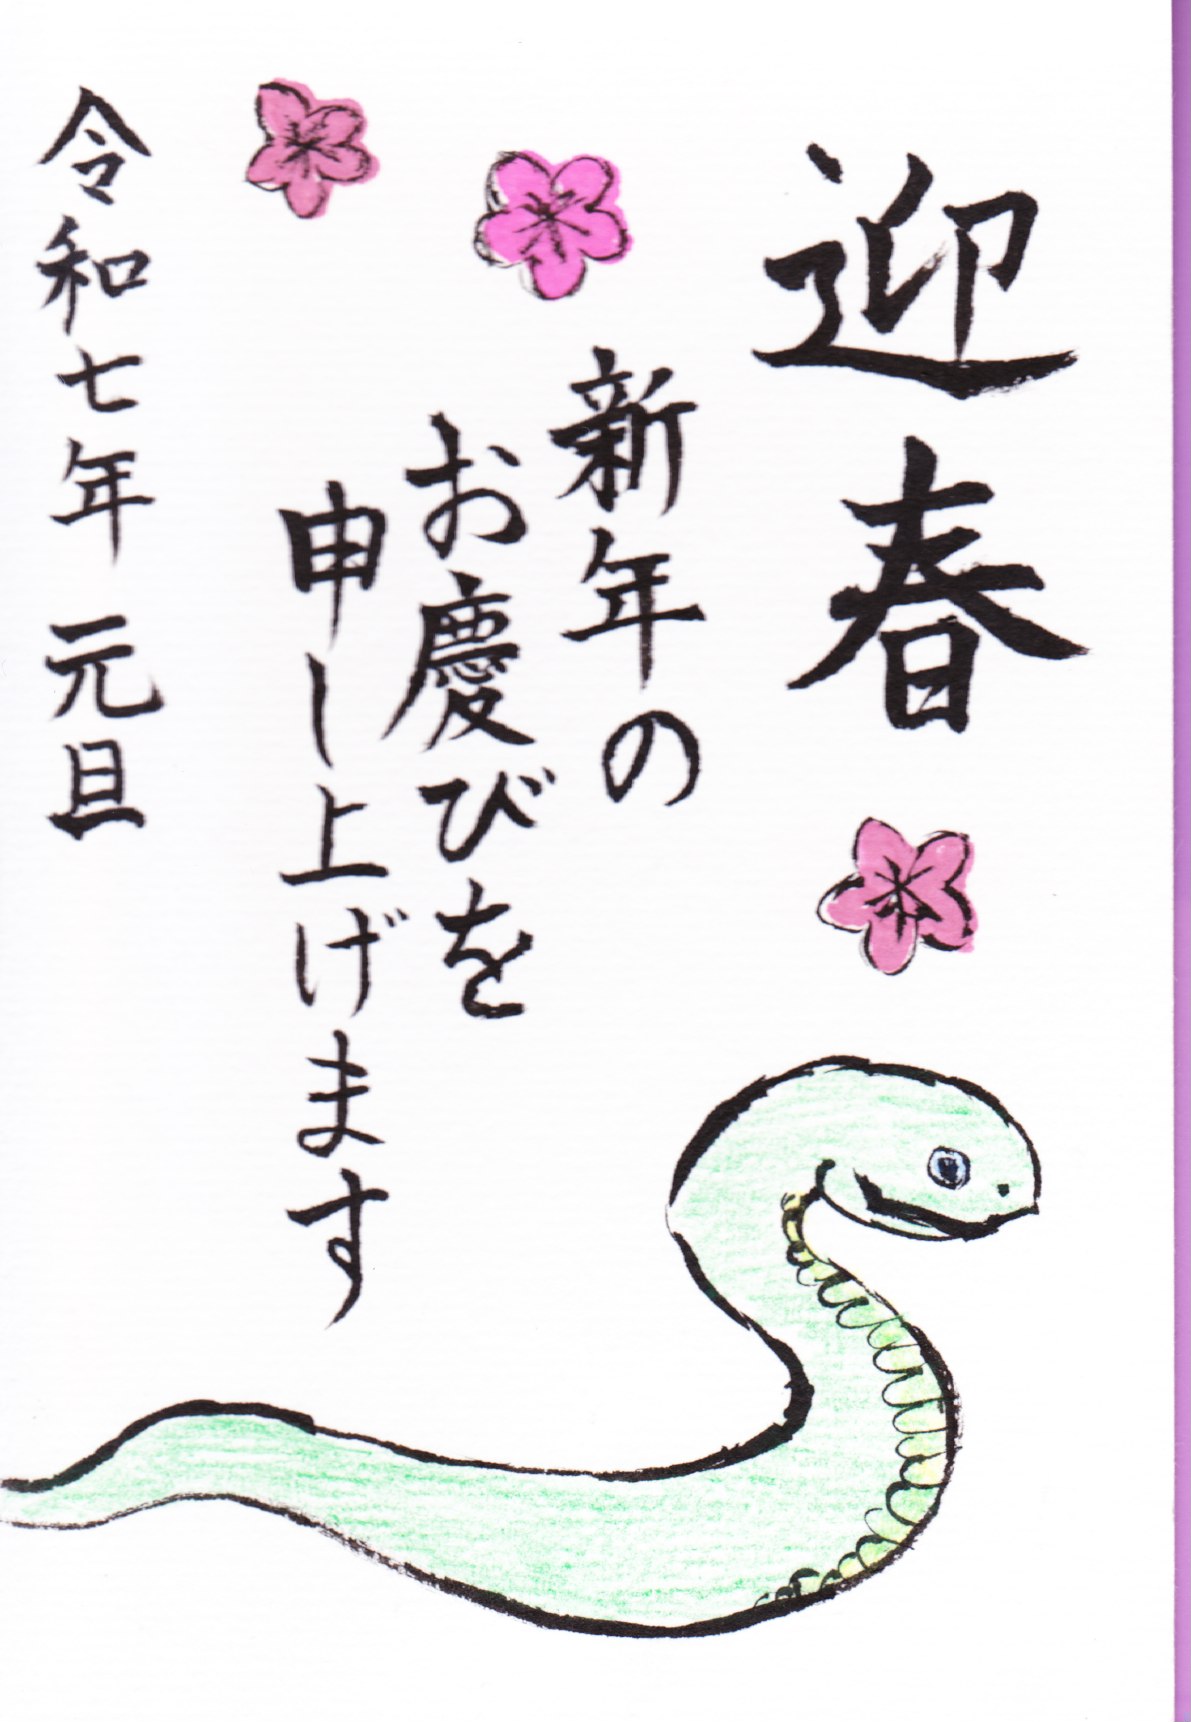 迎春
新年の
お慶びを
申し上げます
令和七年 元旦